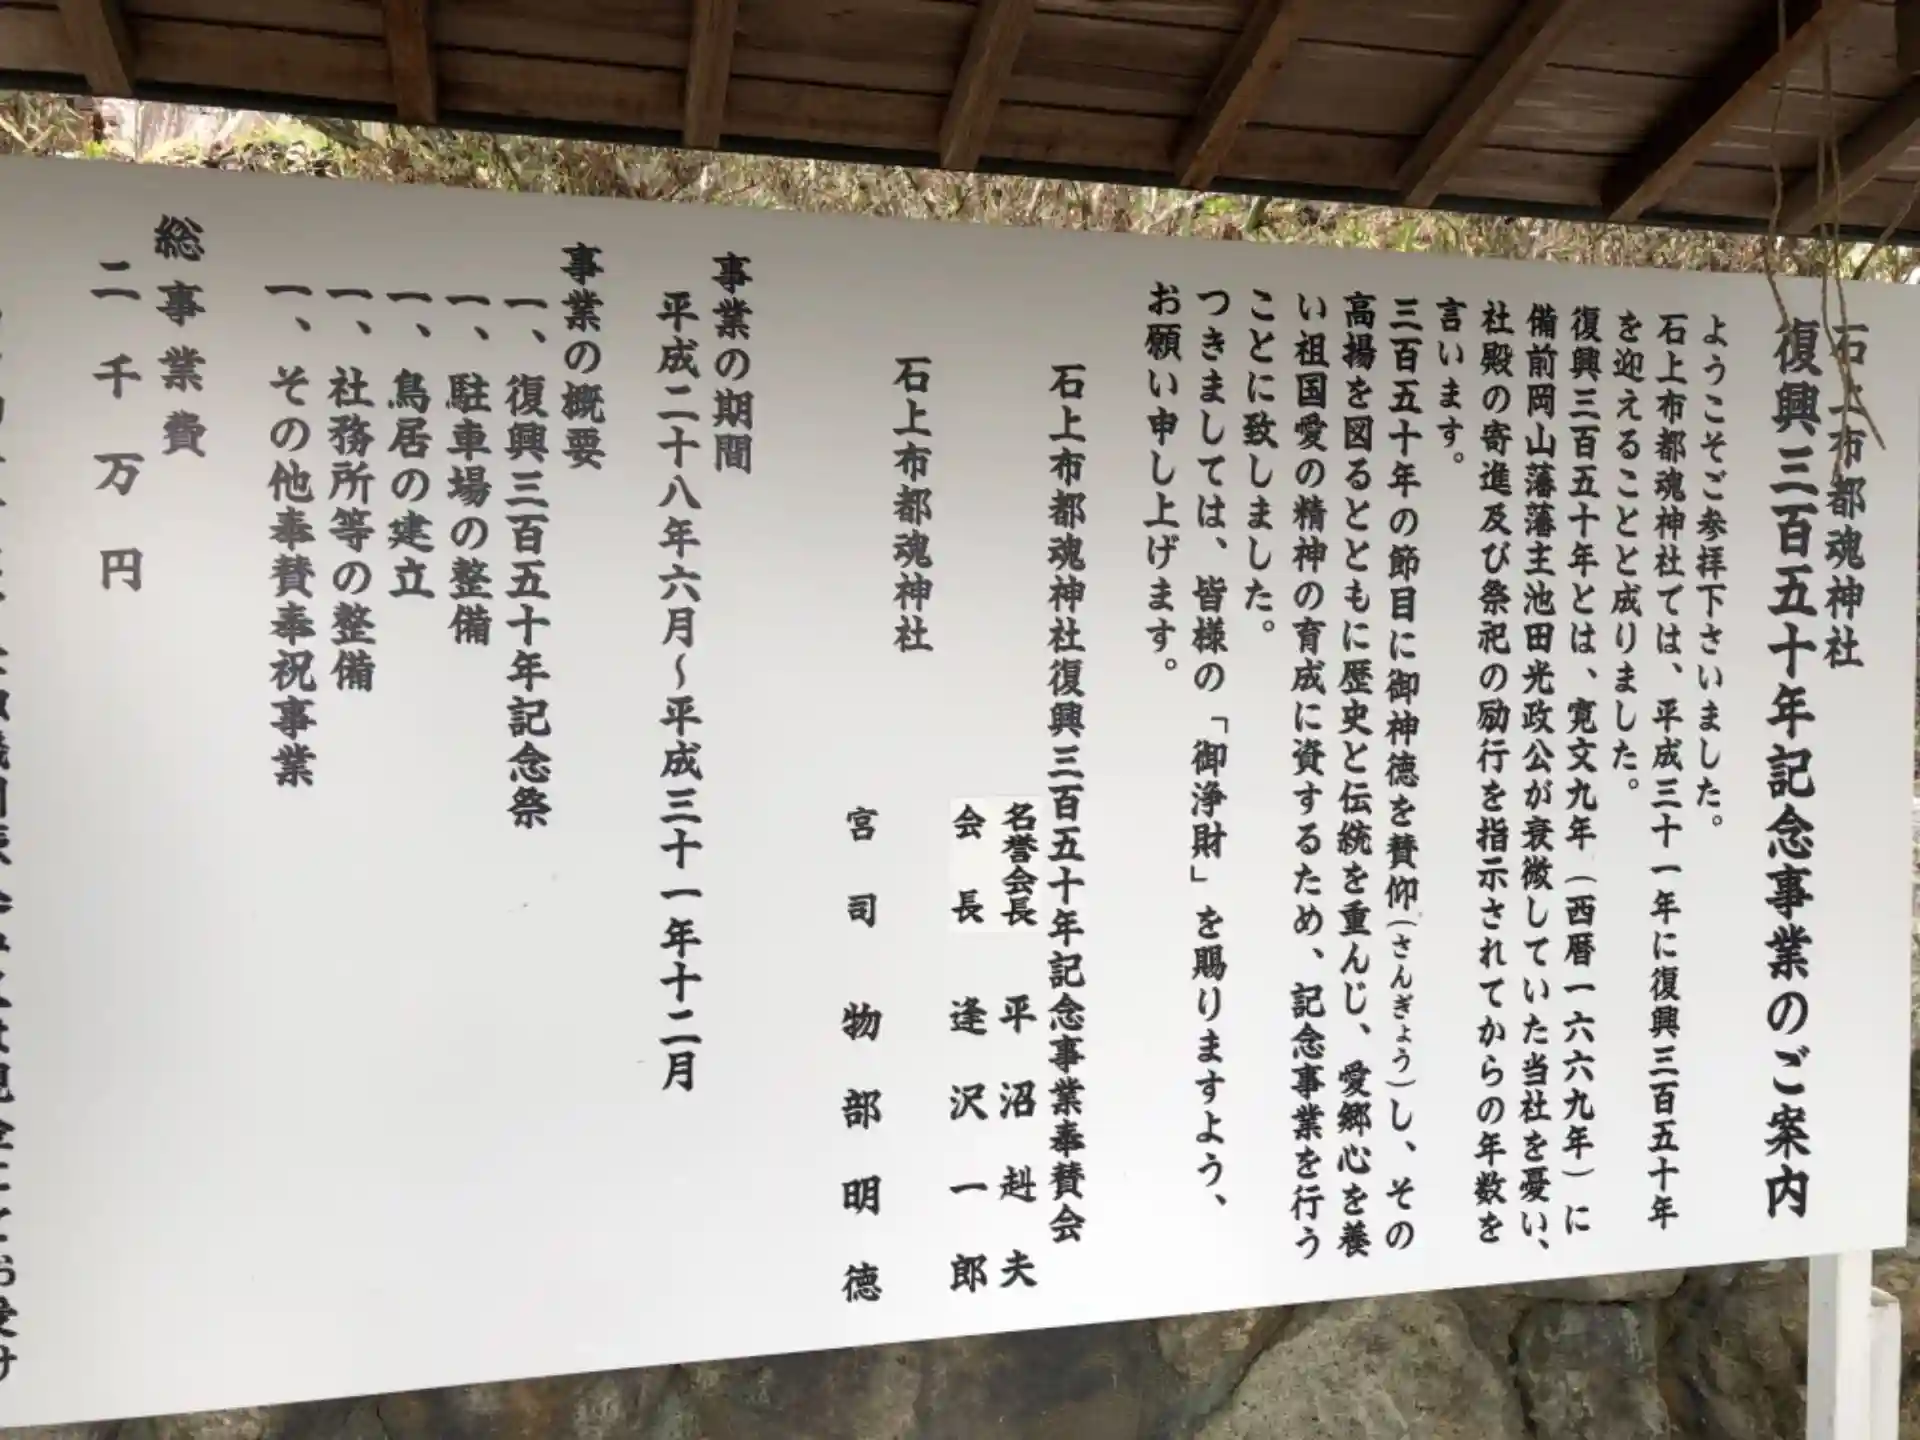 石上布都魂神社
復興三百五十年記念事業のご案内
ようこそご参拝下さいました。
石上布都魂神社では、平成三十一年に復興三百五十年
を迎えることと成りました。
復興三百五十年とは、寛文九年(西暦一六六九年)に
備前岡山藩藩主池田光政公が衰微していた当社を憂い、
社殿の寄進及び祭祀の励行を指示されてからの年数を
言います。
三百五十年の節目に御神徳を賛仰(さんぎょう)し、その
高揚を図るとともに歴史と伝統を重んじ、愛郷心を養
い祖国愛の精神の育成に資するため、記念事業を行う
ことに致しました。
つきましては、皆様の「御浄財」を賜りますよう、
お願い申し上げます。
石上布都魂神社復興三百五十年記念事業奉賛会
名誉会長 平沼赳夫
会長 逢沢一郎
石上布都魂神社
宮司 物部明徳
事業の期間
平成二十八年六月~平成三十一年十二月
事業の概要
一、復興三百五十年記念祭
一、駐車場の整備
一、鳥居の建立
一、社務所等の整備
一、その他奉賛奉祝事業
総事業費
二千万円